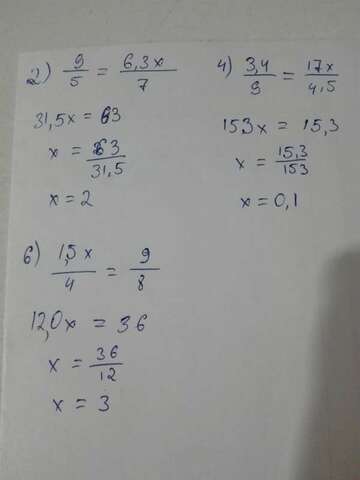 2) 9/5 = 6,3x/7
31,5x = 63
x = 63/31,5
x = 2
4) 3,4/9 = 17x/4,5
153x = 15,3
x = 15,3/153
x = 0,1
6) 1,5x/4 = 9/8
12,0x = 36
x = 36/12
x = 3